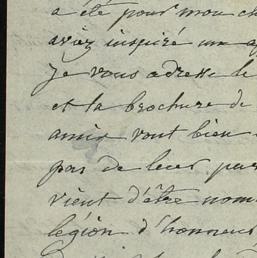 a été pour mon ch
aviez inspiré un a
Je vous adresse le
et la brochure de
amis vont bien
pas de leur par
vient d'être nom
légion d'honneur